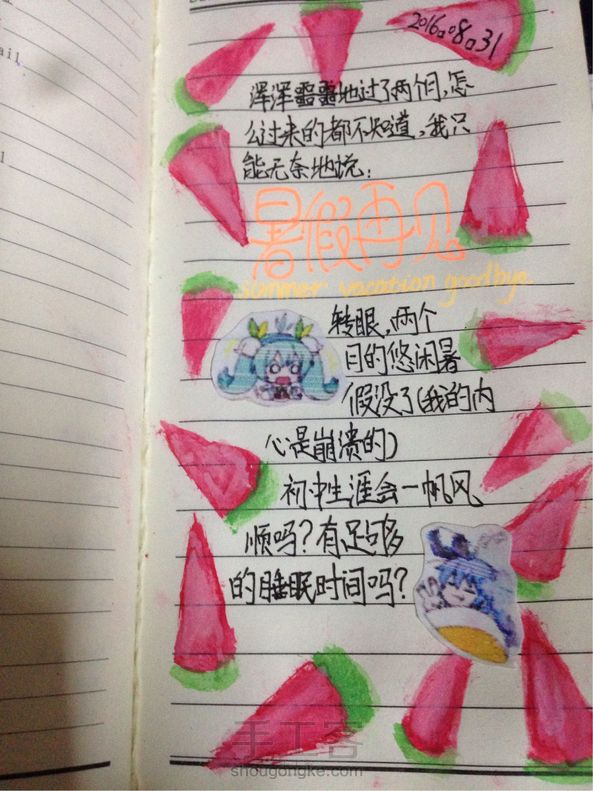 2016.08.31
浑浑噩噩地过了两个月,怎
么过来的都不知道,我只
能无奈地说:
暑假再见。
summer vacation goodbye
转眼,两个
月的悠闲暑
假没了(我的内
心是崩溃的)
初中生涯会一帆风
顺吗?有足够
的睡眠时间吗?
手工客
shougongke.com